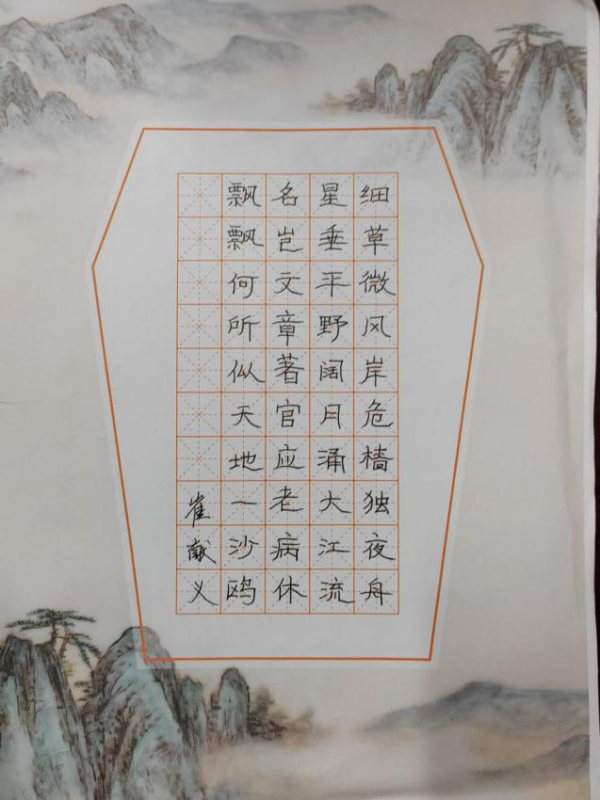 细草微风岸危樯独夜舟
星垂平野阔月涌大江流
名岂文章著官应老病休
飘飘何所似天地一沙鸥
崔献义